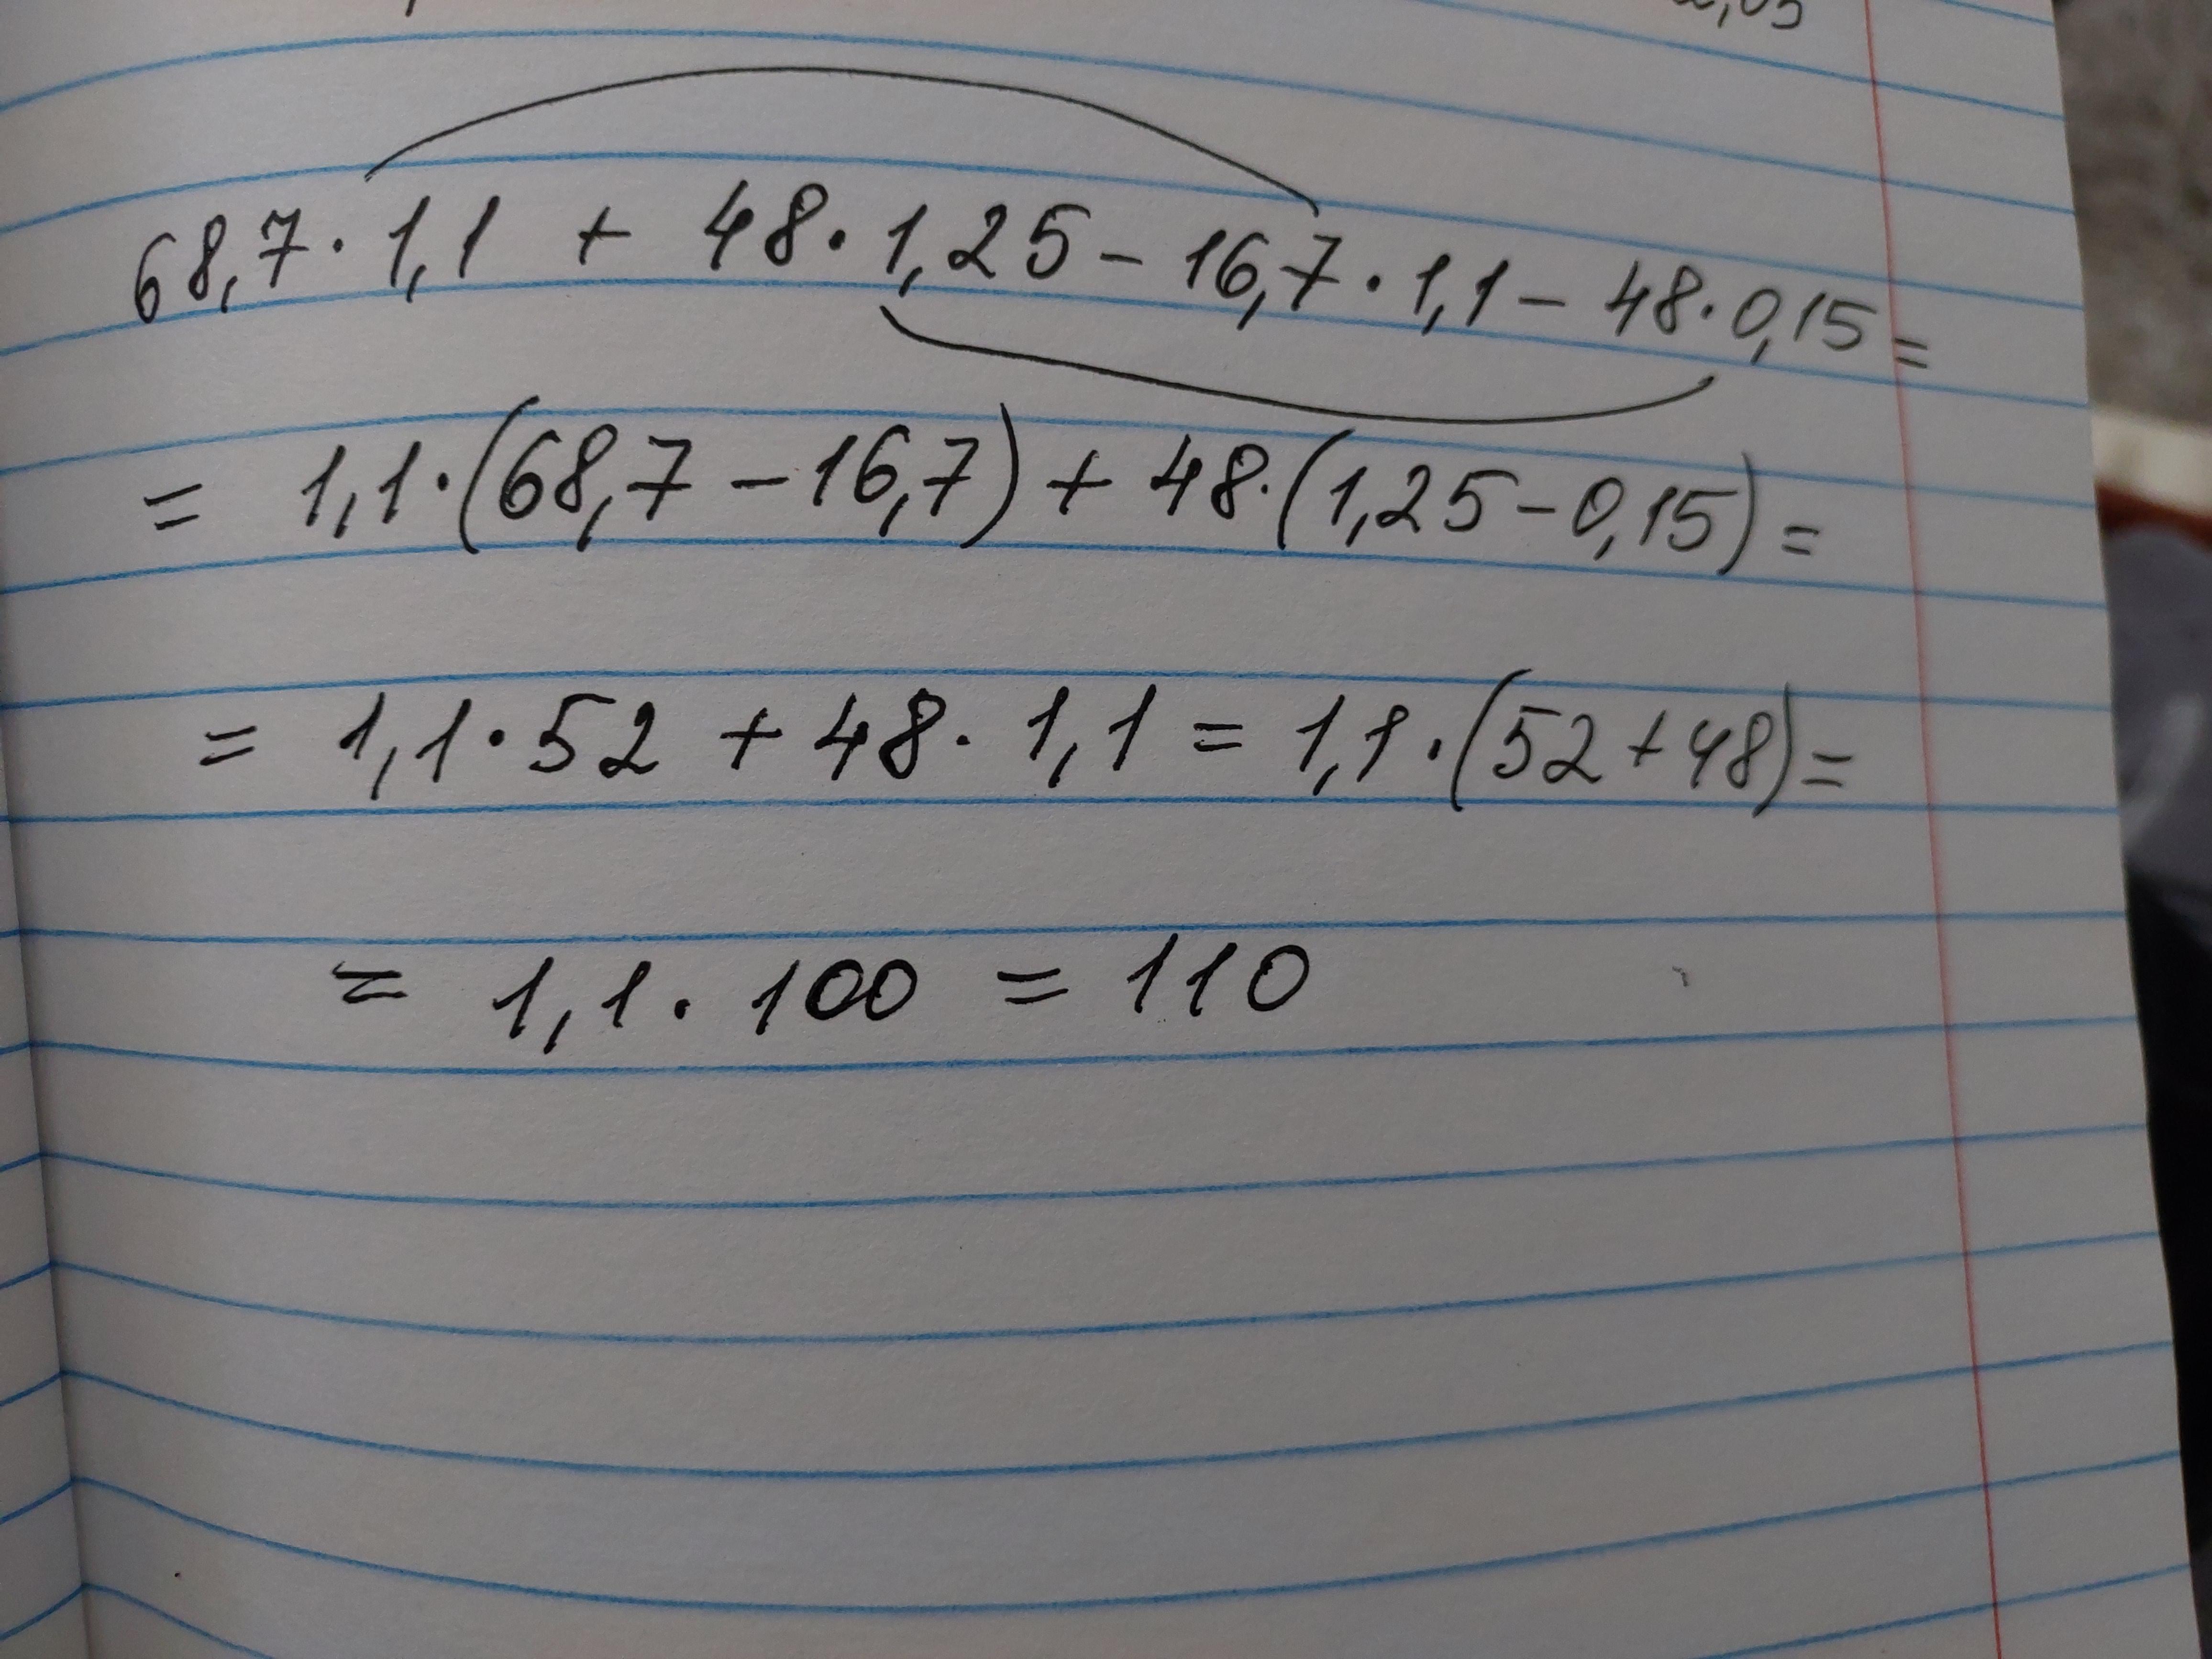 68,7 · 1,1 + 48 · 1,25 - 16,7 · 1,1 - 48 · 0,15 =
= 1,1 · (68,7 - 16,7) + 48 · (1,25 - 0,15) =
= 1,1 · 52 + 48 · 1,1 = 1,1 · (52 + 48) =
= 1,1 · 100 = 110